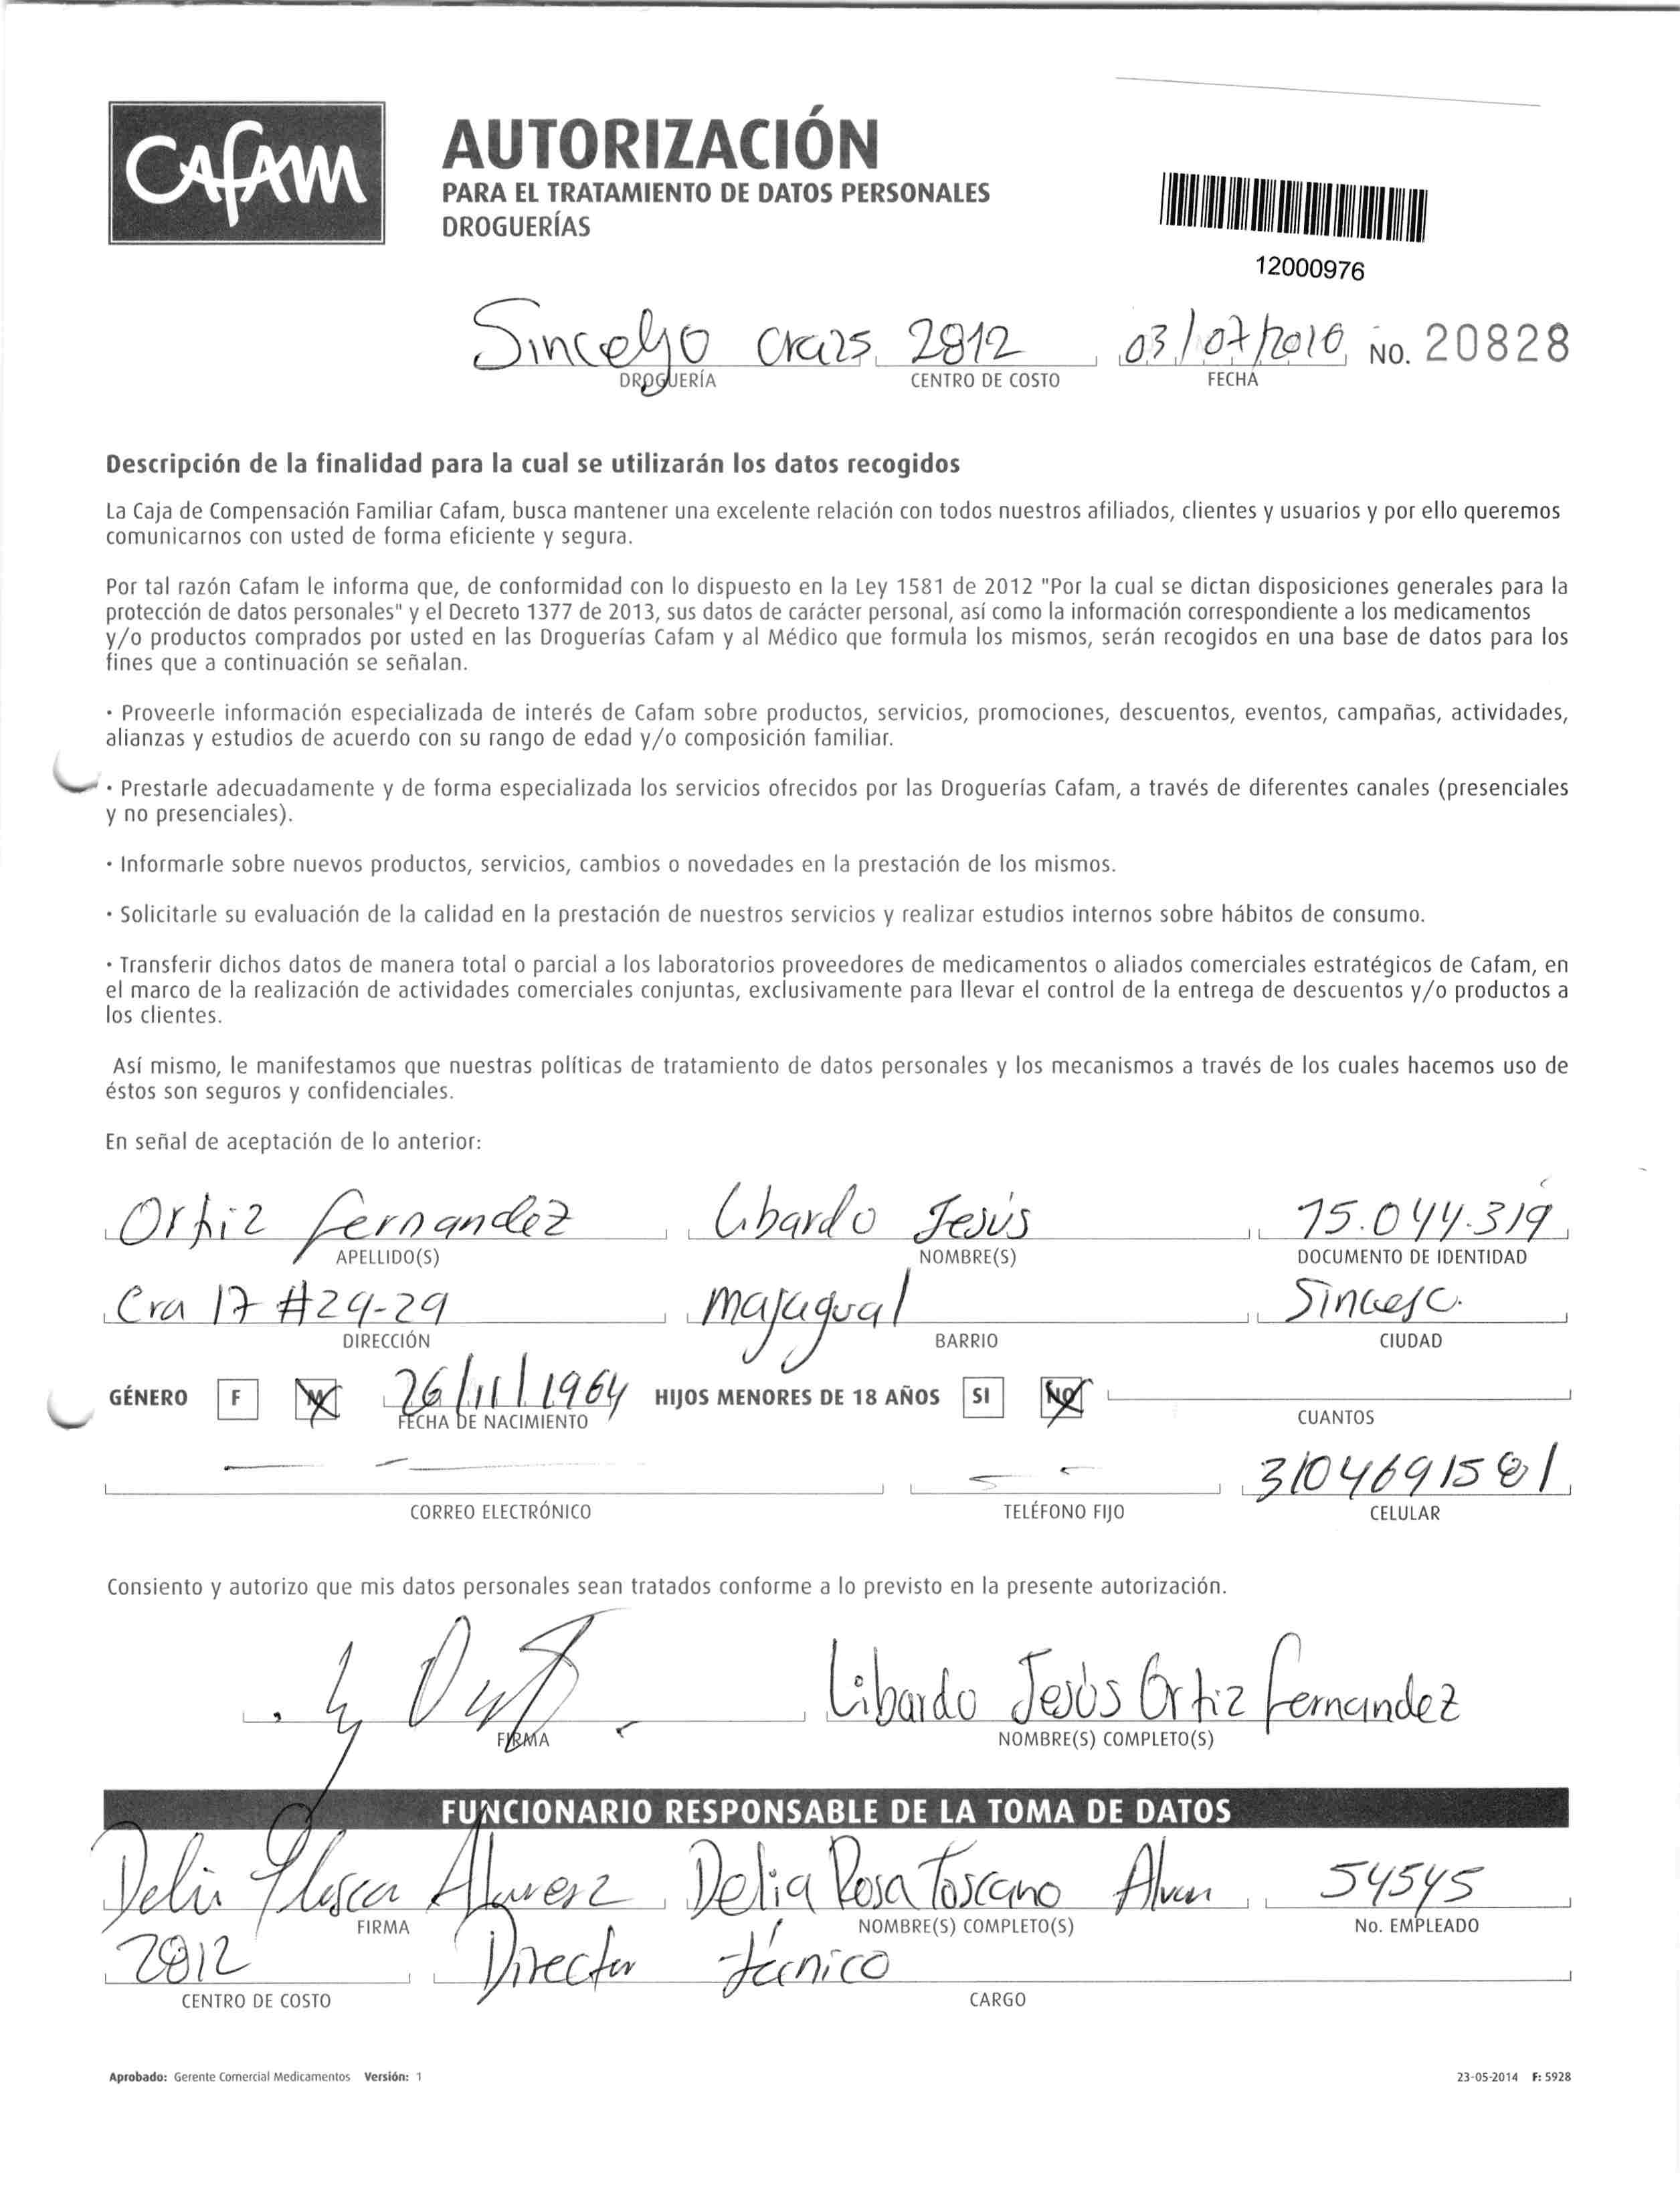 CAfAM
AUTORIZACIÓN
PARA EL TRATAMIENTO DE DATOS PERSONALES
DROGUERÍAS
12000976
Sincelejo cra25 2812 03/07/2016 No. 20828
DROGUERÍA CENTRO DE COSTO FECHA
Descripción de la finalidad para la cual se utilizarán los datos recogidos
La Caja de Compensación Familiar Cafam, busca mantener una excelente relación con todos nuestros afiliados, clientes y usuarios y por ello queremos
comunicarnos con usted de forma eficiente y segura.
Por tal razón Cafam le informa que, de conformidad con lo dispuesto en la Ley 1581 de 2012 "Por la cual se dictan disposiciones generales para la
protección de datos personales" y el Decreto 1377 de 2013, sus datos de carácter personal, así como la información correspondiente a los medicamentos
y/o productos comprados por usted en las Droguerías Cafam y al Médico que formula los mismos, serán recogidos en una base de datos para los
fines que a continuación se señalan.
· Proveerle información especializada de interés de Cafam sobre productos, servicios, promociones, descuentos, eventos, campañas, actividades,
alianzas y estudios de acuerdo con su rango de edad y/o composición familiar.
· Prestarle adecuadamente y de forma especializada los servicios ofrecidos por las Droguerías Cafam, a través de diferentes canales (presenciales
y no presenciales).
· Informarle sobre nuevos productos, servicios, cambios o novedades en la prestación de los mismos.
· Solicitarle su evaluación de la calidad en la prestación de nuestros servicios y realizar estudios internos sobre hábitos de consumo.
· Transferir dichos datos de manera total o parcial a los laboratorios proveedores de medicamentos o aliados comerciales estratégicos de Cafam, en
el marco de la realización de actividades comerciales conjuntas, exclusivamente para llevar el control de la entrega de descuentos y/o productos a
los clientes.
Así mismo, le manifestamos que nuestras políticas de tratamiento de datos personales y los mecanismos a través de los cuales hacemos uso de
éstos son seguros y confidenciales.
En señal de aceptación de lo anterior:
Ortiz fernandez Libardo Jesús 15.044.319
APELLIDO(S) NOMBRE(S) DOCUMENTO DE IDENTIDAD
Cra 17 #29-29 majagual
DIRECCIÓN BARRIO CIUDAD
GÉNERO F M 26/11/1964 HIJOS MENORES DE 18 AÑOS SI NO
FECHA DE NACIMIENTO CUANTOS
3104691581
CORREO ELECTRÓNICO TELÉFONO FIJO CELULAR
Consiento y autorizo que mis datos personales sean tratados conforme a lo previsto en la presente autorización.
Libardo Jesús Ortiz fernandez
FIRMA NOMBRE(S) COMPLETO(S)
FUNCIONARIO RESPONSABLE DE LA TOMA DE DATOS
Delia Rosa Toscano 54545
FIRMA NOMBRE(S) COMPLETO(S) No. EMPLEADO
2812 Director técnico
CENTRO DE COSTO CARGO
Aprobado: Gerente Comercial Medicamentos Versión: 1 23-05-2014 F: 5928